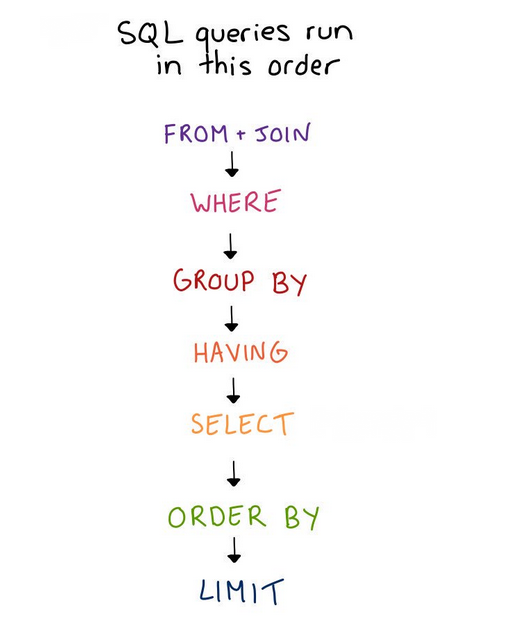 SQL queries run
in this order
FROM + JOIN
WHERE
GROUP BY
HAVING
SELECT
ORDER BY
LIMIT